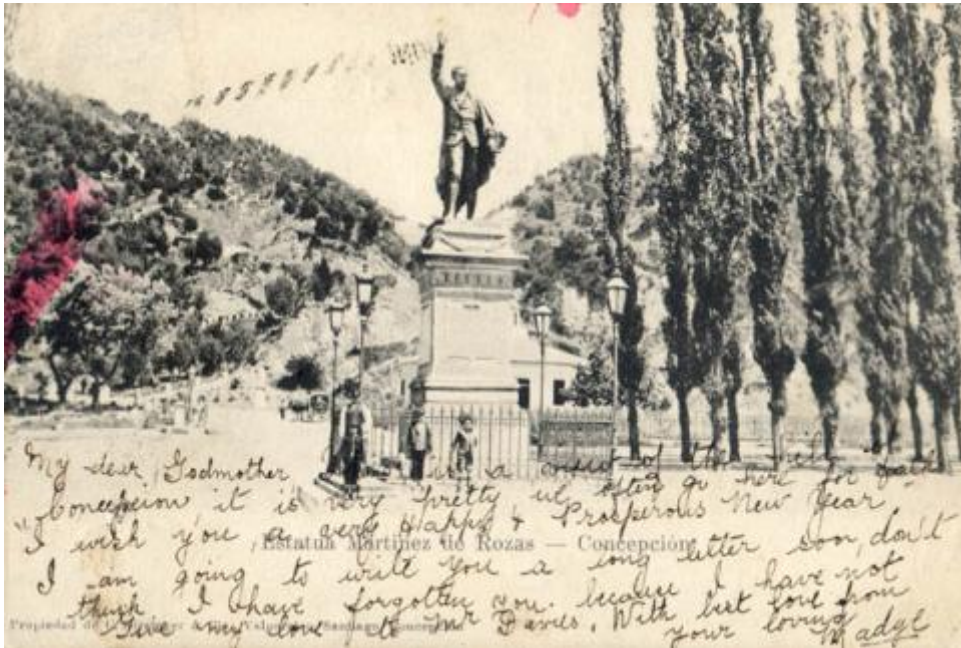 My dear Godmother is a view of the
Concepcion it is very pretty we often go here for
I wish you a very Happy & Prosperous New Year
Estatua Martinez de Rozas — Concepción
I am going to write you a long letter soon, don't
think I have forgotten you. because I have not
Give my love to Mr Davies. With best love from
your loving
Madge
Propiedad de Santiago, Concepción